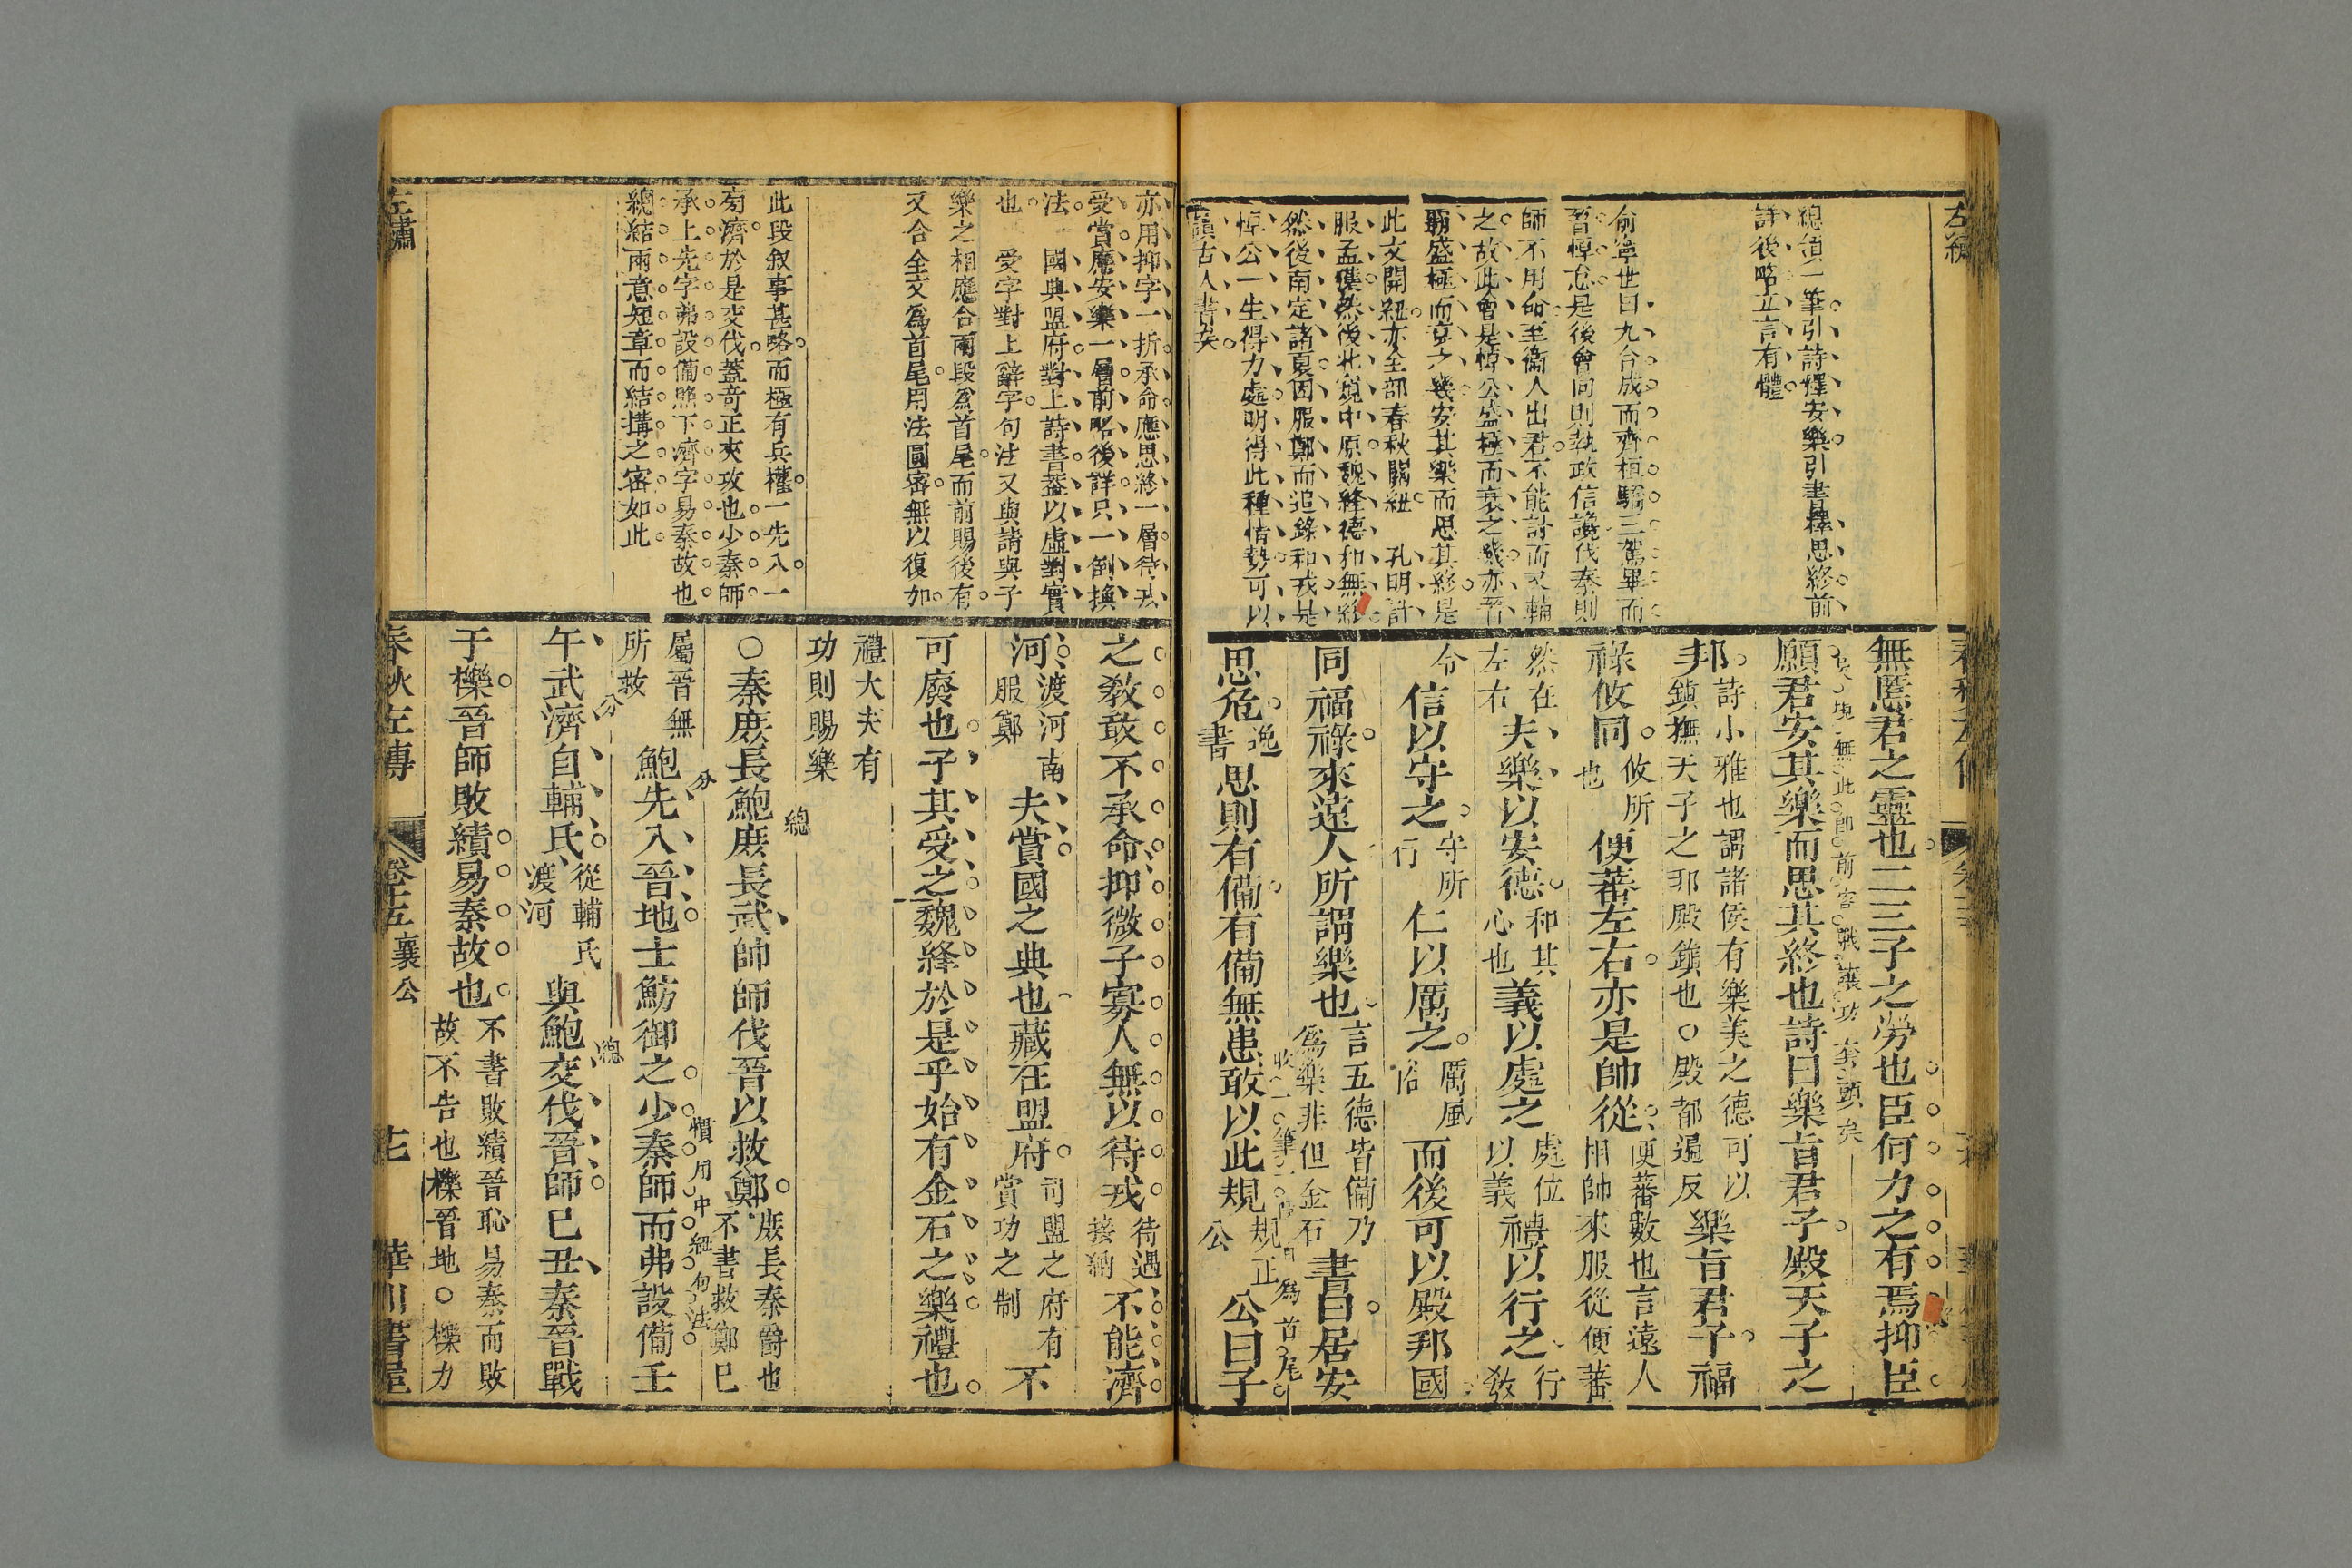 左繡
總領一筆引詩釋安樂引書釋思終前
詳後略立言有體
俞寧世曰九合成而齊桓驕三駕畢而
晉悼怠是後會同則執政信讒伐秦則
師不用命至衞人出君不能討而又輔
之故此會是悼公盛極而衰之幾亦晉
霸盛極而衰之幾安其樂而思其終是
此文開紐亦全部春秋關紐 孔明計
服孟獲然後北窺中原魏絳德和無終
然後南定諸夏因服鄭而追錄和戎是
悼公一生得力處明得此種情勢可以
讀古人書矣
春秋左傳
無慝君之靈也二三子之勞也臣何力之有焉抑臣
願君安其樂而思其終也詩曰樂旨君子殿天子之
邦詩小雅也謂諸侯有樂美之德可以
鎮撫天子之邦殿鎮也○殿都遍反樂旨君子福
祿攸同攸所
也便蕃左右亦是帥從便蕃數也言遠人
相帥來服從便蕃
然在
左右夫樂以安德和其
心也義以處之處位
以義禮以行之行
敎
令信以守之守所
行仁以厲之厲風
俗而後可以殿邦國
同福祿來遠人所謂樂也言五德皆備乃
爲樂非但金石書曰居安
思危逸
書思則有備有備無患敢以此規規正
公公曰子
亦用抑字一折承命應思終一層待戎
受賞應安樂一層前略後詳只一倒換
法 國典盟府對上詩書蓋以虛對實
也 受字對上辭字句法又與請與子
樂之相應合兩段爲首尾而前賜後有
又合全文爲首尾用法圓密無以復加
此段叙事甚略而極有兵權一先入一
旁濟於是交伐蓋奇正夾攻也少秦師
承上先字弗設備照下濟字易秦故也
總結兩意短章而結搆之密如此
之敎敢不承命抑微子寡人無以待戎待遇
接納不能濟
河渡河南
服鄭夫賞國之典也藏在盟府司盟之府有
賞功之制不
可廢也子其受之魏絳於是乎始有金石之樂禮也
禮大夫有
功則賜樂
○秦庶長鮑庶長武帥師伐晉以救鄭庶長秦爵也
不書救鄭巳
屬晉無
所救鮑先入晉地士魴御之少秦師而弗設備壬
午武濟自輔氏從輔氏
渡河與鮑交伐晉師巳丑秦晉戰
于櫟晉師敗績易秦故也不書敗績晉恥易秦而敗
故不告也櫟晉地○櫟力
總
分
慣用中紐句法
分
總
左繡
春秋左傳 卷十五 襄公 華川書屋